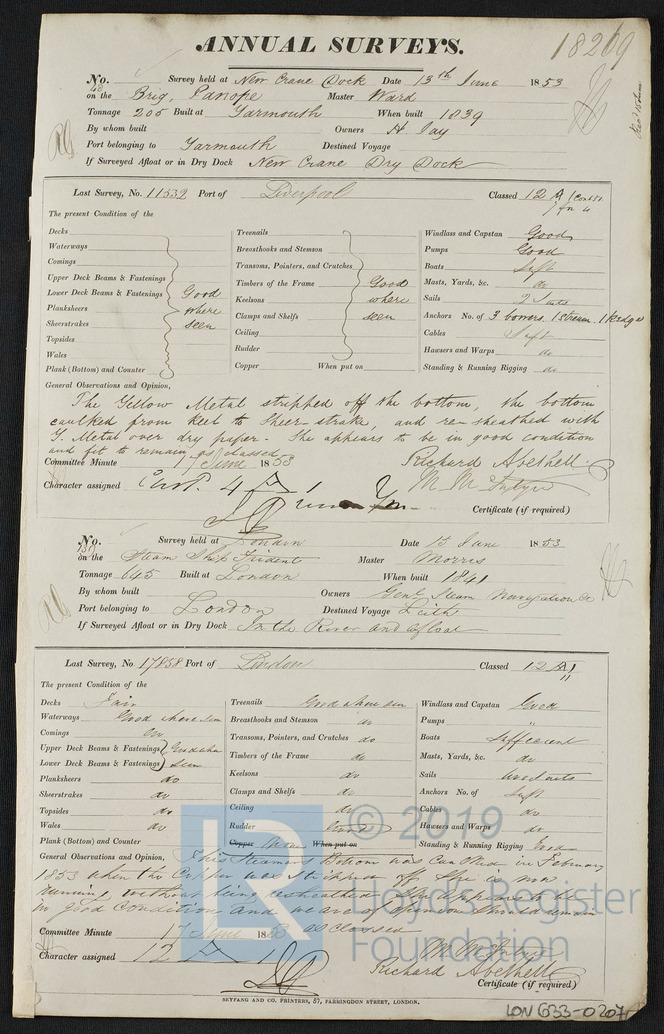 18209
ANNUAL SURVEYS.
No. 48 Survey held at New Crane Dock Date 13th June 1853
on the Brig, Panope Master Ward
Tonnage 205 Built at Yarmouth When built 1839
By whom built Owners H Jay
Port belonging to Yarmouth Destined Voyage
If Surveyed Afloat or in Dry Dock New Crane Dry Dock
Last Survey, No. 11539 Port of Liverpool Classed 12 A 1
The present Condition of the
Decks
Waterways
Comings
Upper Deck Beams & Fastenings
Lower Deck Beams & Fastenings Good
Planksheers where
Sheerstrakes seen
Topsides
Wales
Plank (Bottom) and Counter
Treenails
Breasthooks and Stemson
Transoms, Pointers, and Crutches
Timbers of the Frame Good
Keelsons where
Clamps and Shelfs seen
Ceiling
Rudder
Copper When put on
Windlass and Capstan Good
Pumps Good
Boats Suft
Masts, Yards, &c. do
Sails 2 Suits
Anchors No. of 3 bowers 1 stream 1 Kedge
Cables Suft
Hawsers and Warps do
Standing & Running Rigging do
General Observations and Opinion,
The Yellow Metal stripped off the bottom, the bottom
caulked from Keel to Sheer-strake, and re-sheathed with
Y. Metal over dry paper. She appears to be in good condition
and fit to remain as classed
Committee Minute 17 June 1853 Richard Abethell
Character assigned Cont. 4 A 1
Certificate (if required)
No. Survey held at London Date 15 June 1853
on the Steam Ship Trident Master Morris
Tonnage 645 Built at London When built 1841
By whom built Owners Genl Steam Navigation Co
Port belonging to London Destined Voyage Leith
If Surveyed Afloat or in Dry Dock In the River and afloat
Last Survey, No 17838 Port of London Classed 12 A 1
The present Condition of the
Decks Fair
Waterways Good where seen
Comings do
Upper Deck Beams & Fastenings Good where
Lower Deck Beams & Fastenings Seen
Planksheers do
Sheerstrakes do
Topsides do
Wales do
Plank (Bottom) and Counter
Treenails Good where seen
Breasthooks and Stemson do
Transoms, Pointers, and Crutches do
Timbers of the Frame do
Keelsons do
Clamps and Shelfs do
Ceiling do
Rudder Good
Copper When put on
Windlass and Capstan Good
Pumps "
Boats Sufficient
Masts, Yards, &c. do
Sails
Anchors No. of Suft
Cables do
Hawsers and Warps do
Standing & Running Rigging Good
General Observations and Opinion, This Steamers Bottom was Caulked in February
1853 when the Copper was stripped off, She is now
running without being resheathed. She appears to be
in good Condition and we are of opinion should remain
as classed
Committee Minute 17 June 1853
Character assigned 12 A 1
Richard Abethell
Certificate (if required)
SEYFANG AND CO. PRINTERS, 57, FARRINGDON STREET, LONDON.
LON 633-0207
LR
© 2019
Lloyd's Register
Foundation